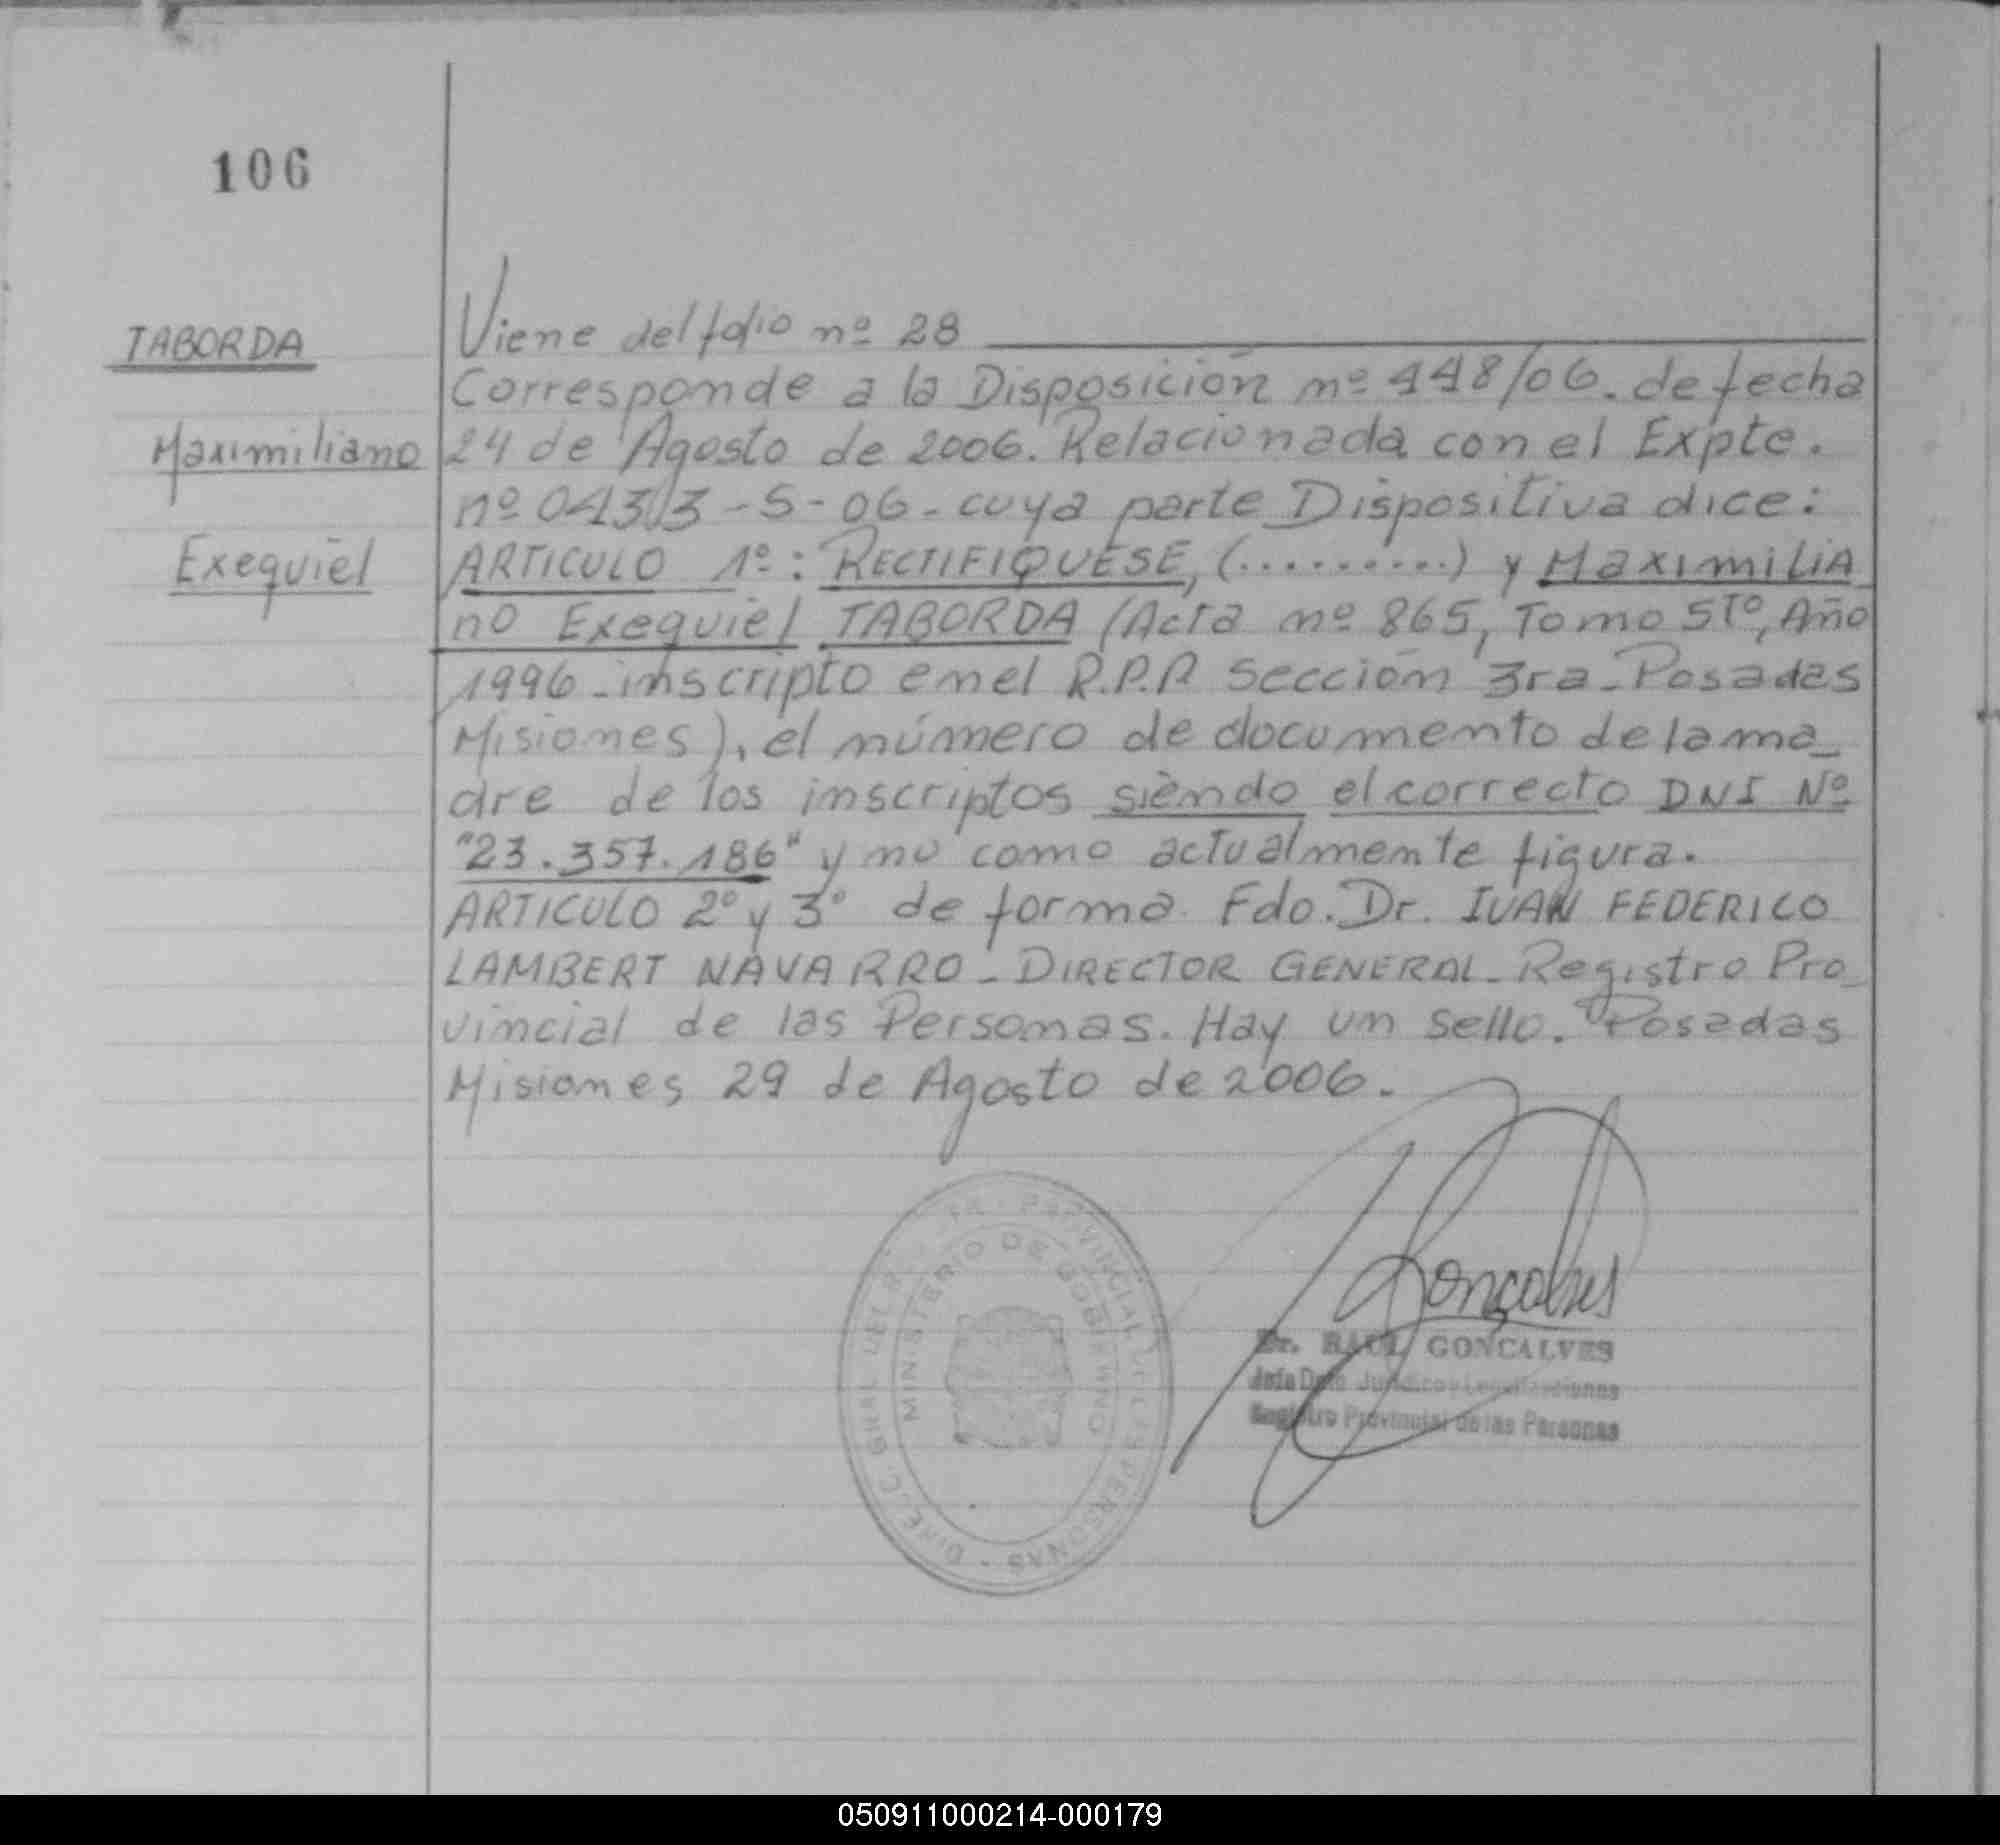 106
TABORDA
Maximiliano
Exequiel
Viene del folio nº 28
Corresponde a la Disposición nº 448/06. de fecha
24 de Agosto de 2006. Relacionada con el Expte.
nº 04313-S-06- cuya parte Dispositiva dice:
ARTICULO 1º: RECTIFIQUESE, (..........) y MaximiliA
no Exequiel TABORDA (Acta nº 865, Tomo 5Tº, Año
1996-inscripto en el R.P.P. Sección 3ra-Posadas
Misiones), el número de documento de la ma_
dre de los inscriptos siendo el correcto DNI Nº
"23.357.186" y no como actualmente figura.
ARTICULO 2º y 3º de forma. Fdo. Dr. IVAN FEDERICO
LAMBERT NAVARRO - DIRECTOR GENERAL - Registro Pro_
vincial de las Personas. Hay un sello. Posadas
Misiones 29 de Agosto de 2006.
Gonçalves
Dr. RAUL GONCALVES
Jefe Dpto Jurídico y Legalizaciones
Registro Provincial de las Personas
PROVINCIAL DE LAS PERSONAS
MINISTERIO DE GOBIERNO
050911000214-000179